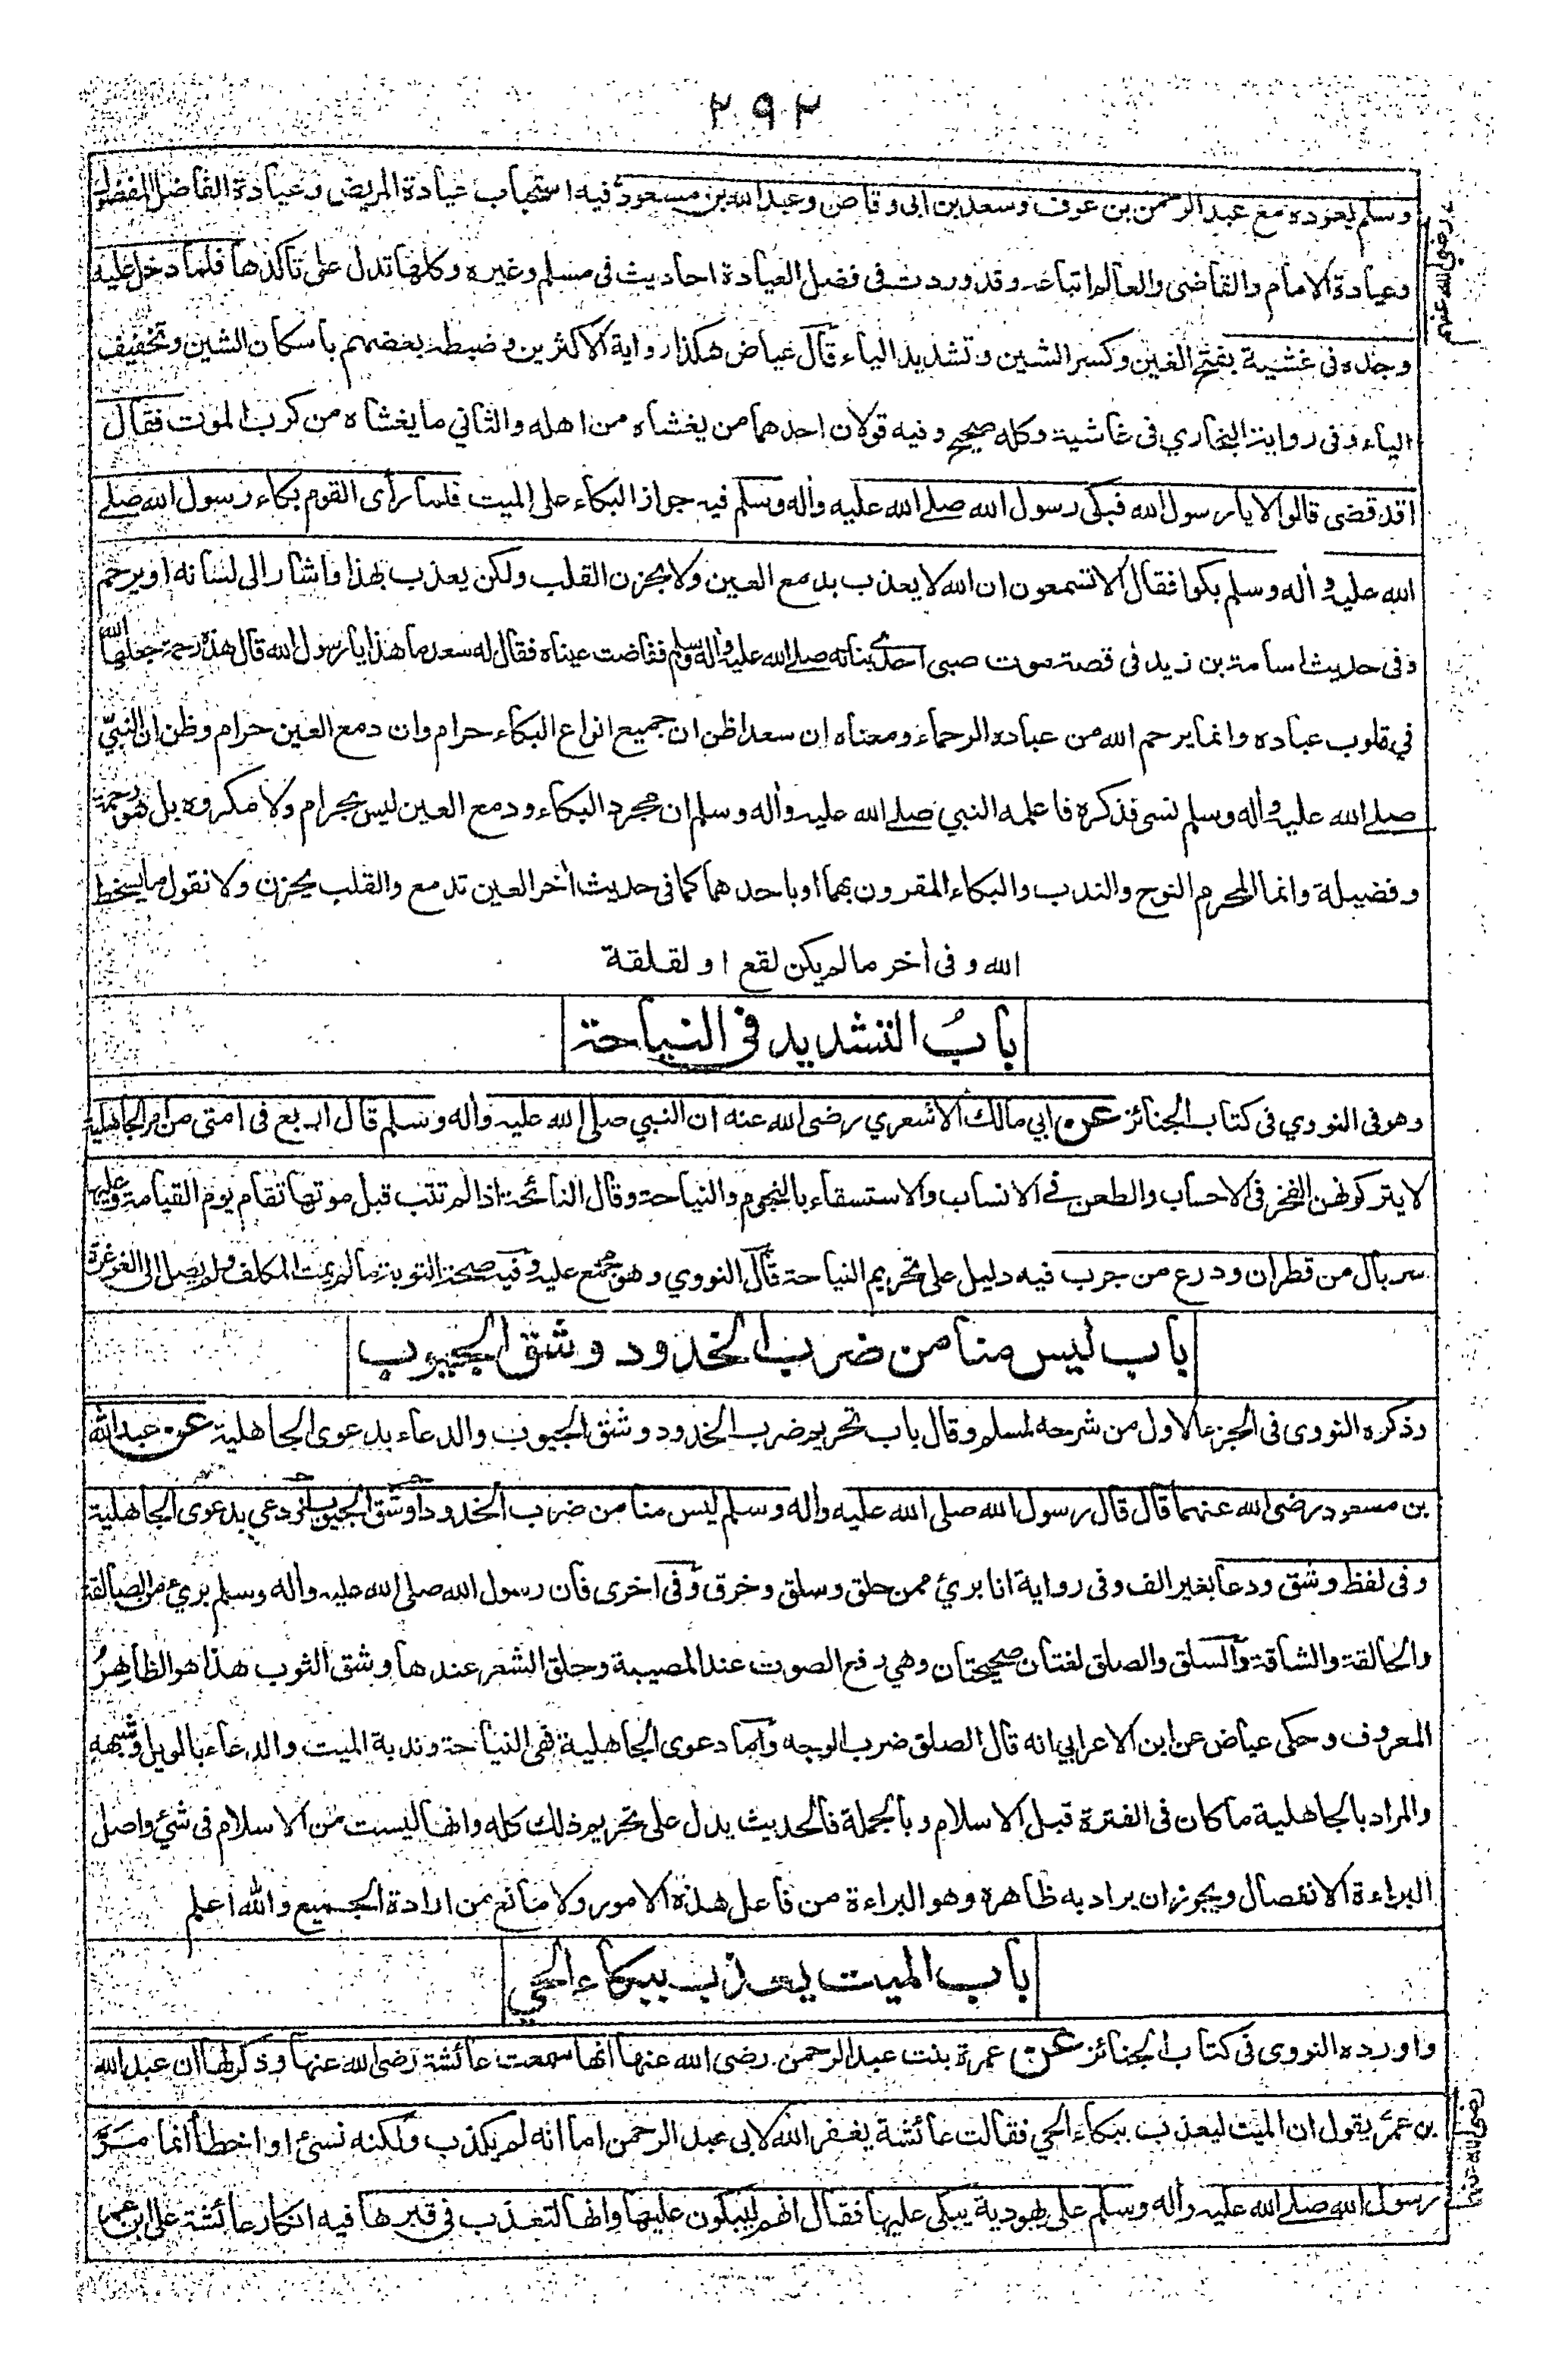 ٢٩٢
وسلم يعوده مع عبد الرحمن بن عوف وسعد بن ابى وقاص وعبد الله بن مسعود فيه استحباب عيادة المريض وعيادة الفاضل المفضول
وعيادة الامام والقاضى والعالم اتباعه وقد وردت فى فضل العيادة احاديث فى مسلم وغيره وكلها تدل على تأكدها فلما دخل عليه
وجده فى غشية بفتح الغين وكسر الشين وتشديد الياء قال عياض هكذا رواية الاكثرين وضبطه بعضهم باسكان الشين وتخفيف
الياء وفى رواية البخاري فى غاشية وكله صحيح وفيه قولان احدهما من يغشاه من اهله والثاني ما يغشاه من كرب الموت فقال
اقد قضى قالوا لا يا رسول الله فبكى رسول الله صلے الله عليه وأله وسلم فيه جواز البكاء على الميت فلما رأى القوم بكاء رسول الله صلے
الله عليه وأله وسلم بكوا فقال الا تسمعون ان الله لا يعذب بدمع العين ولا بحزن القلب ولكن يعذب بهذا فاشار الى لسانه او يرحم
وفى حديث اسامة بن زيد فى قصة موت صبى احدى بناته صلے الله عليه وأله وسلم ففاضت عيناه فقال له سعد ما هذا يا رسول الله قال هذه رحمة جعلها الله
في قلوب عباده وانما يرحم الله من عباده الرحماء ومعناه ان سعدا ظن ان جميع انواع البكاء حرام وان دمع العين حرام وظن ان النبيّ
صلے الله عليه وأله وسلم نسى فذكره فاعلمه النبي صلے الله عليه وأله وسلم ان مجرد البكاء ودمع العين ليس بحرام ولا مكروه بل هو رحمة
وفضيلة وانما المحرم النوح والندب والبكاء المقرون بهما او باحدهما كما فى حديث أخر العين تدمع والقلب يحزن ولا نقول ما يسخط
الله وفى أخر ما لم يكن لقع او لقلقة
بابُ التشديد فى النياحة
وهو فى النووي فى كتاب الجنائز عن ابي مالك الاشعري رضى الله عنه ان النبي صلى الله عليه وأله وسلم قال اربع فى امتى من امر الجاهلية
لا يتركونهن الفخر فى الاحساب والطعن فے الانساب والاستسقاء بالنجوم والنياحة وقال النائحة اذا لم تتب قبل موتها تقام يوم القيامة وعليها
سربال من قطران ودرع من جرب فيه دليل على تحريم النياحة قال النووي وهو مجمع عليه وفيه صحة التوبة ما لم يمت المكلف ولم يصل الى الغرغرة
باب ليس منا من ضرب الخدود وشق الجيوب
وذكره النووى فى الجزء الاول من شرحه لمسلم وقال باب تحريم ضرب الخدود وشق الجيوب والدعاء بدعوى الجاهلية عن عبد الله
بن مسعود رضى الله عنهما قال قال رسول الله صلى الله عليه وأله وسلم ليس منا من ضرب الخدود أو شق الجيوب او دعى بدعوى الجاهلية
وفى لفظ وشق ودعا بغير الف وفى رواية انا بريئ ممن حلق وسلق وخرق وفى اخرى فان رسول الله صلى الله عليه وأله وسلم بريء من الصالقة
والحالقة والشاقة والسلق والصلق لغتان صحيحتان وهي رفع الصوت عند المصيبة وحلق الشعر عندها وشق الثوب هذا هو الظاهرُ
المعروف وحكى عياض عن ابن الاعرابي انه قال الصلق ضرب الوجه واما دعوى الجاهلية فهى النياحة وندبة الميت والدعاء بالويل وشبهه
والمراد بالجاهلية ما كان فى الفترة قبل الاسلام وبالجملة فالحديث يدل على تحريم ذلك كله وانها ليست من الاسلام فى شيء واصل
البراءة الانفصال ويجوز ان يراد به ظاهره وهو البراءة من فاعل هذه الامور ولا مانع من ارادة الجميع والله اعلم
باب الميت يعذب ببكاء الحي
واورده النووى فى كتاب الجنائز عن عمرة بنت عبد الرحمن رضى الله عنها انها سمعت عائشة رضى الله عنها وذكر لها ان عبد الله
بن عمر يقول ان الميت ليعذب ببكاء الحي فقالت عائشة يغفر الله لابى عبد الرحمن اما انه لم يكذب ولكنه نسئ او اخطأ انما مرّ
رسول الله صلے الله عليه وأله وسلم على يهودية يبكى عليها فقال انهم ليبكون عليها وانها لتعذب فى قبرها فيه انكار عائشة على ابن عمر